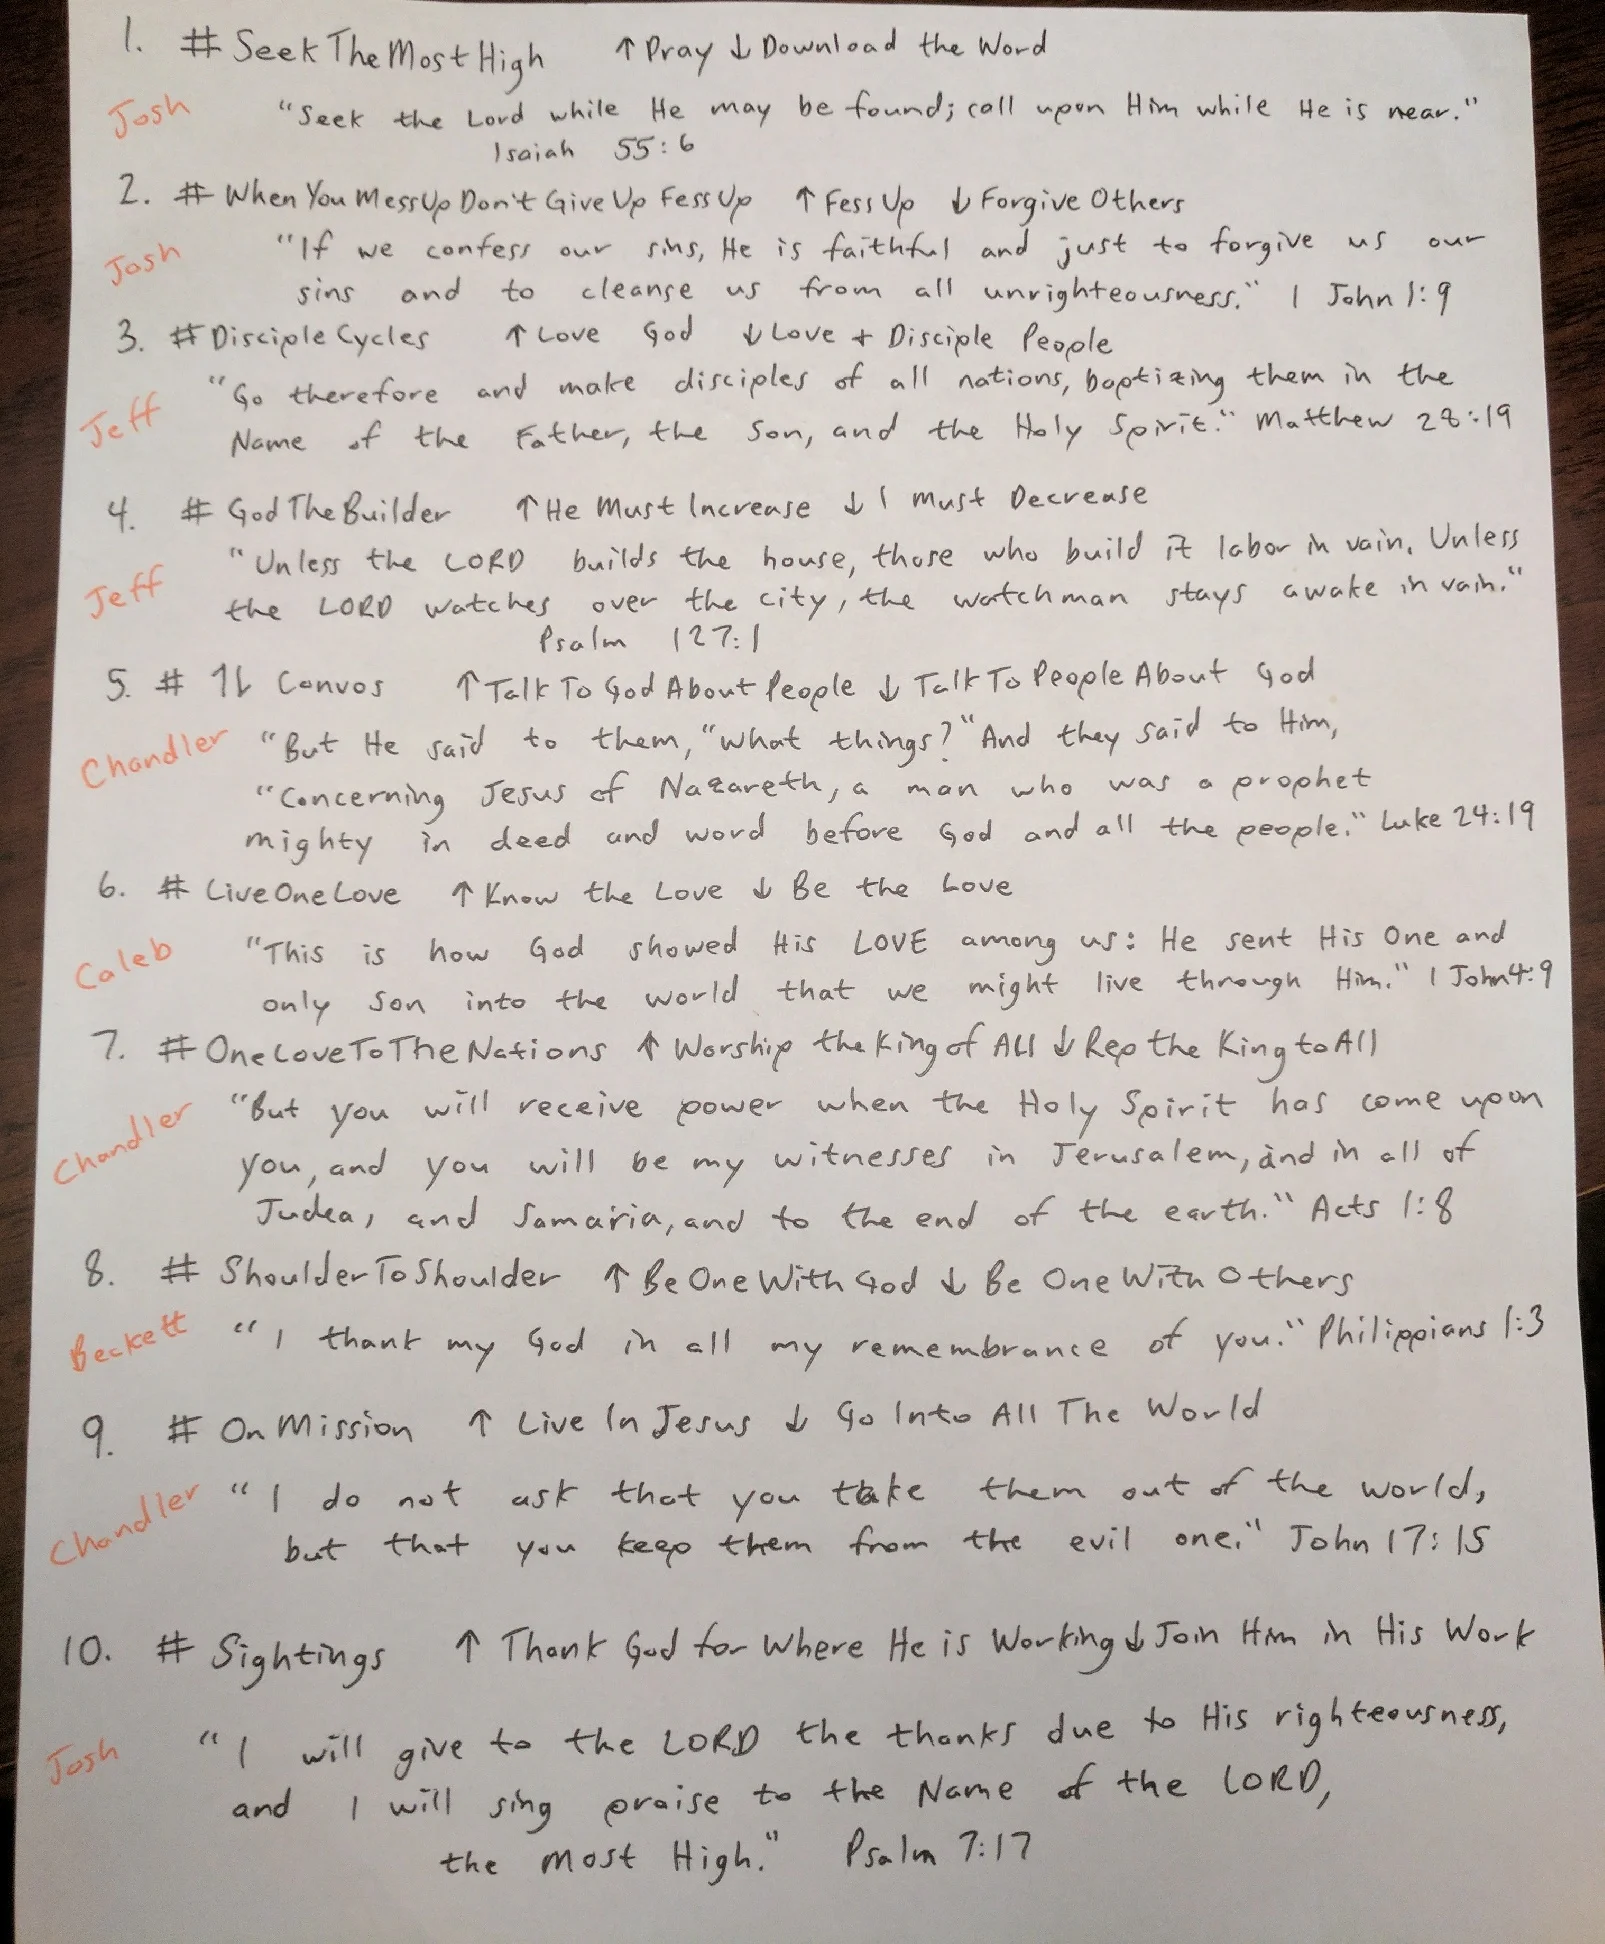 1. # SeekTheMostHigh ↑ Pray ↓ Download the Word
Josh "Seek the Lord while He may be found; call upon Him while He is near."
Isaiah 55:6
2. # WhenYouMessUpDon'tGiveUpFessUp ↑ Fess Up ↓ Forgive Others
Josh "If we confess our sins, He is faithful and just to forgive us our
sins and to cleanse us from all unrighteousness." 1 John 1:9
3. # DiscipleCycles ↑ Love God ↓ Love + Disciple People
"Go therefore and make disciples of all nations, baptizing them in the
Jeff Name of the Father, the Son, and the Holy Spirit." Matthew 28:19
4. # GodTheBuilder ↑ He Must Increase ↓ I Must Decrease
"Unless the LORD builds the house, those who build it labor in vain. Unless
Jeff the LORD watches over the city, the watchman stays awake in vain."
Psalm 127:1
5. # ↑↓ Convos ↑ Talk To God About People ↓ Talk To People About God
Chandler "But He said to them, "What things?" And they said to Him,
"Concerning Jesus of Nazareth, a man who was a prophet
mighty in deed and word before God and all the people." Luke 24:19
6. # LiveOneLove ↑ Know the Love ↓ Be the Love
Caleb "This is how God showed His LOVE among us: He sent His One and
only Son into the world that we might live through Him." 1 John 4:9
7. # OneLoveToTheNations ↑ Worship the King of All ↓ Rep the King to All
Chandler "But you will receive power when the Holy Spirit has come upon
you, and you will be my witnesses in Jerusalem, and in all of
Judea, and Samaria, and to the end of the earth." Acts 1:8
8. # ShoulderToShoulder ↑ Be One With God ↓ Be One With Others
Beckett "I thank my God in all my remembrance of you." Philippians 1:3
9. # OnMission ↑ Live In Jesus ↓ Go Into All The World
Chandler "I do not ask that you take them out of the world,
but that you keep them from the evil one." John 17:15
10. # Sightings ↑ Thank God for Where He is Working ↓ Join Him in His Work
Josh "I will give to the LORD the thanks due to His righteousness,
and I will sing praise to the Name of the LORD,
the Most High." Psalm 7:17